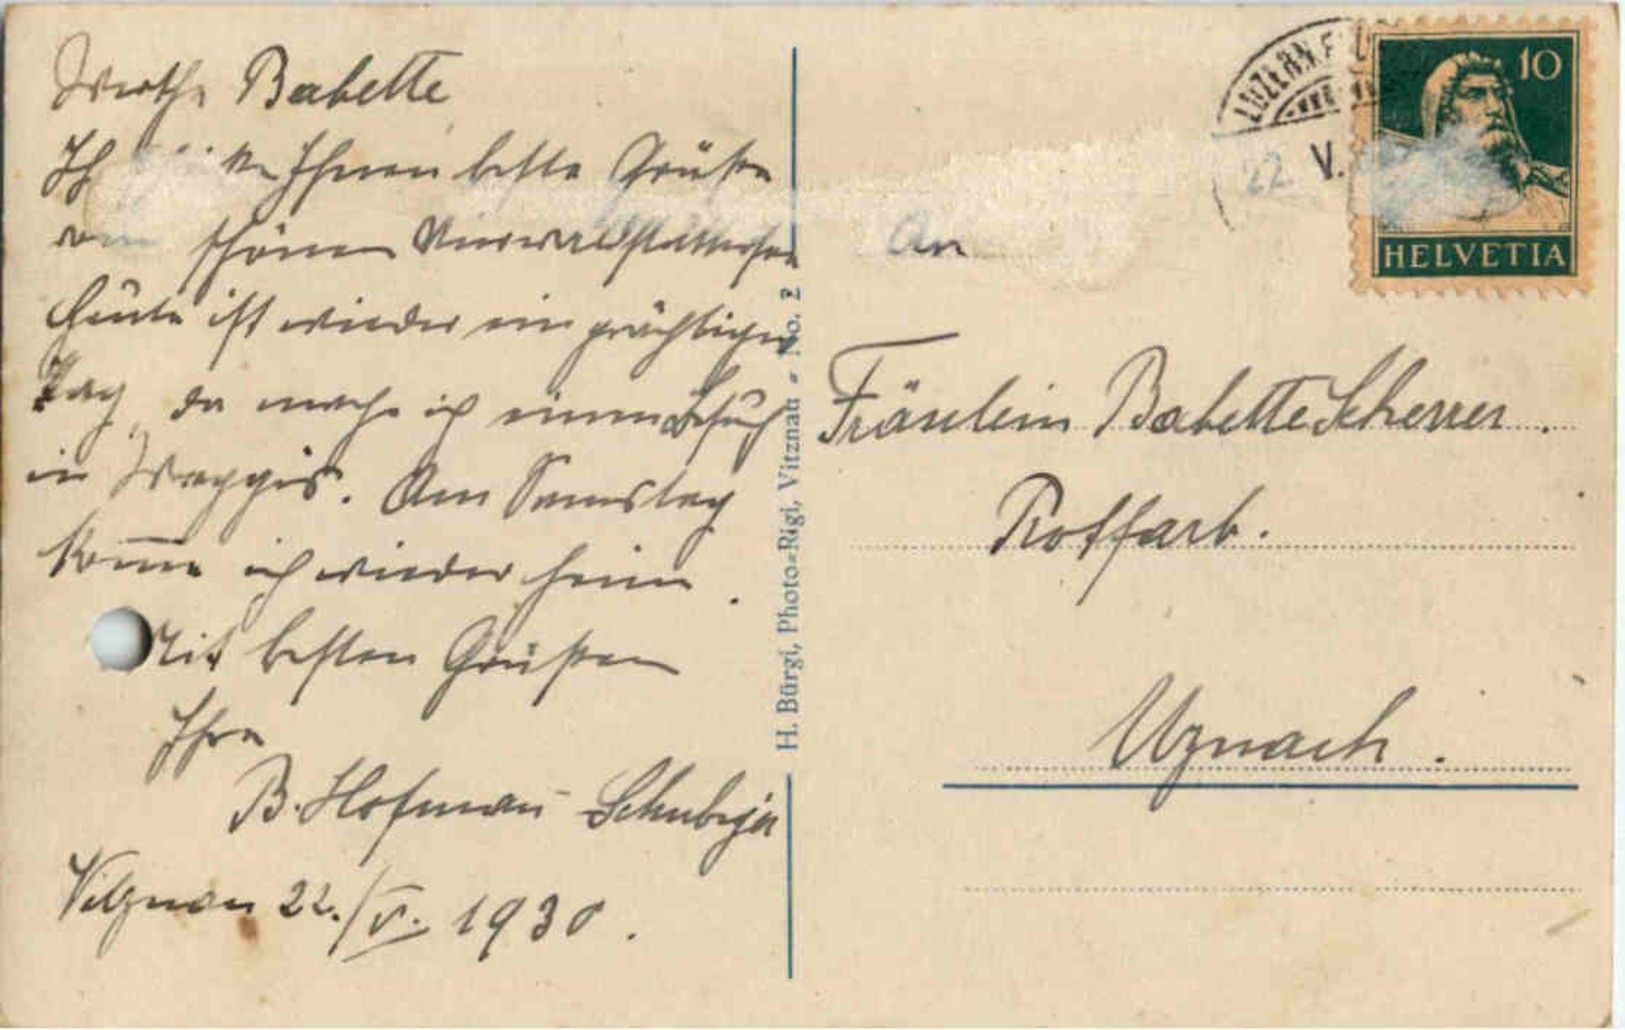 Werthe Babette
Ich Ihnen beste Grüße
vom schönen Vierwaldstättersee
heute ist wieder ein prächtiger
Tag, da mache ich einen Besuch
in Weggis. Am Samstag
kom̄e ich wieder heim.
Mit besten Grüßen
Ihre
B. Hofman̄ Schubiger
Vitznau 22./V. 1930.
H. Bürgi, Photo-Rigi, Vitznau - No. 2
LUZERN
22. V.
10
HELVETIA
An
Fräulein Babette Scherrer.
Rotfarb.
Uznach.